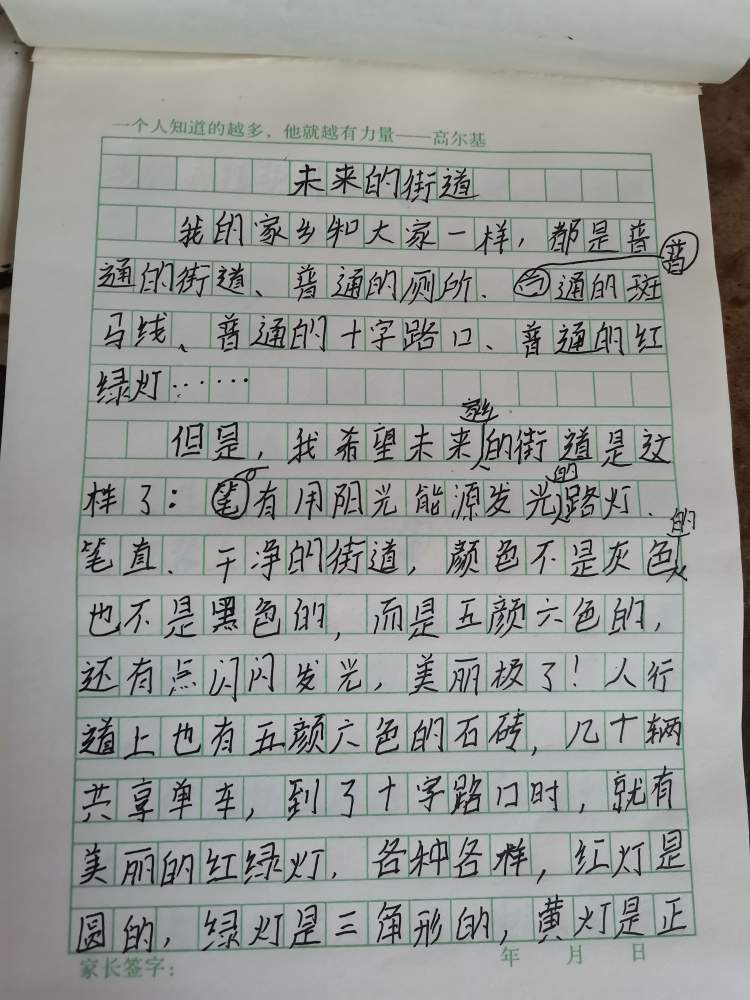 一个人知道的越多，他就越有力量——高尔基
未来的街道
我的家乡和大家一样，都是普
通的街道、普通的厕所、普通的斑
马线、普通的十字路口、普通的红
绿灯……
但是，我希望未来家乡的街道是这
样了：有用阳光能源发光的路灯、
笔直、干净的街道，颜色不是灰色的
也不是黑色的，而是五颜六色的，
还有点闪闪发光，美丽极了！人行
道上也有五颜六色的石砖，几十辆
共享单车，到了十字路口时，就有
美丽的红绿灯，各种各样，红灯是
圆的，绿灯是三角形的，黄灯是正
家长签字：
年 月 日